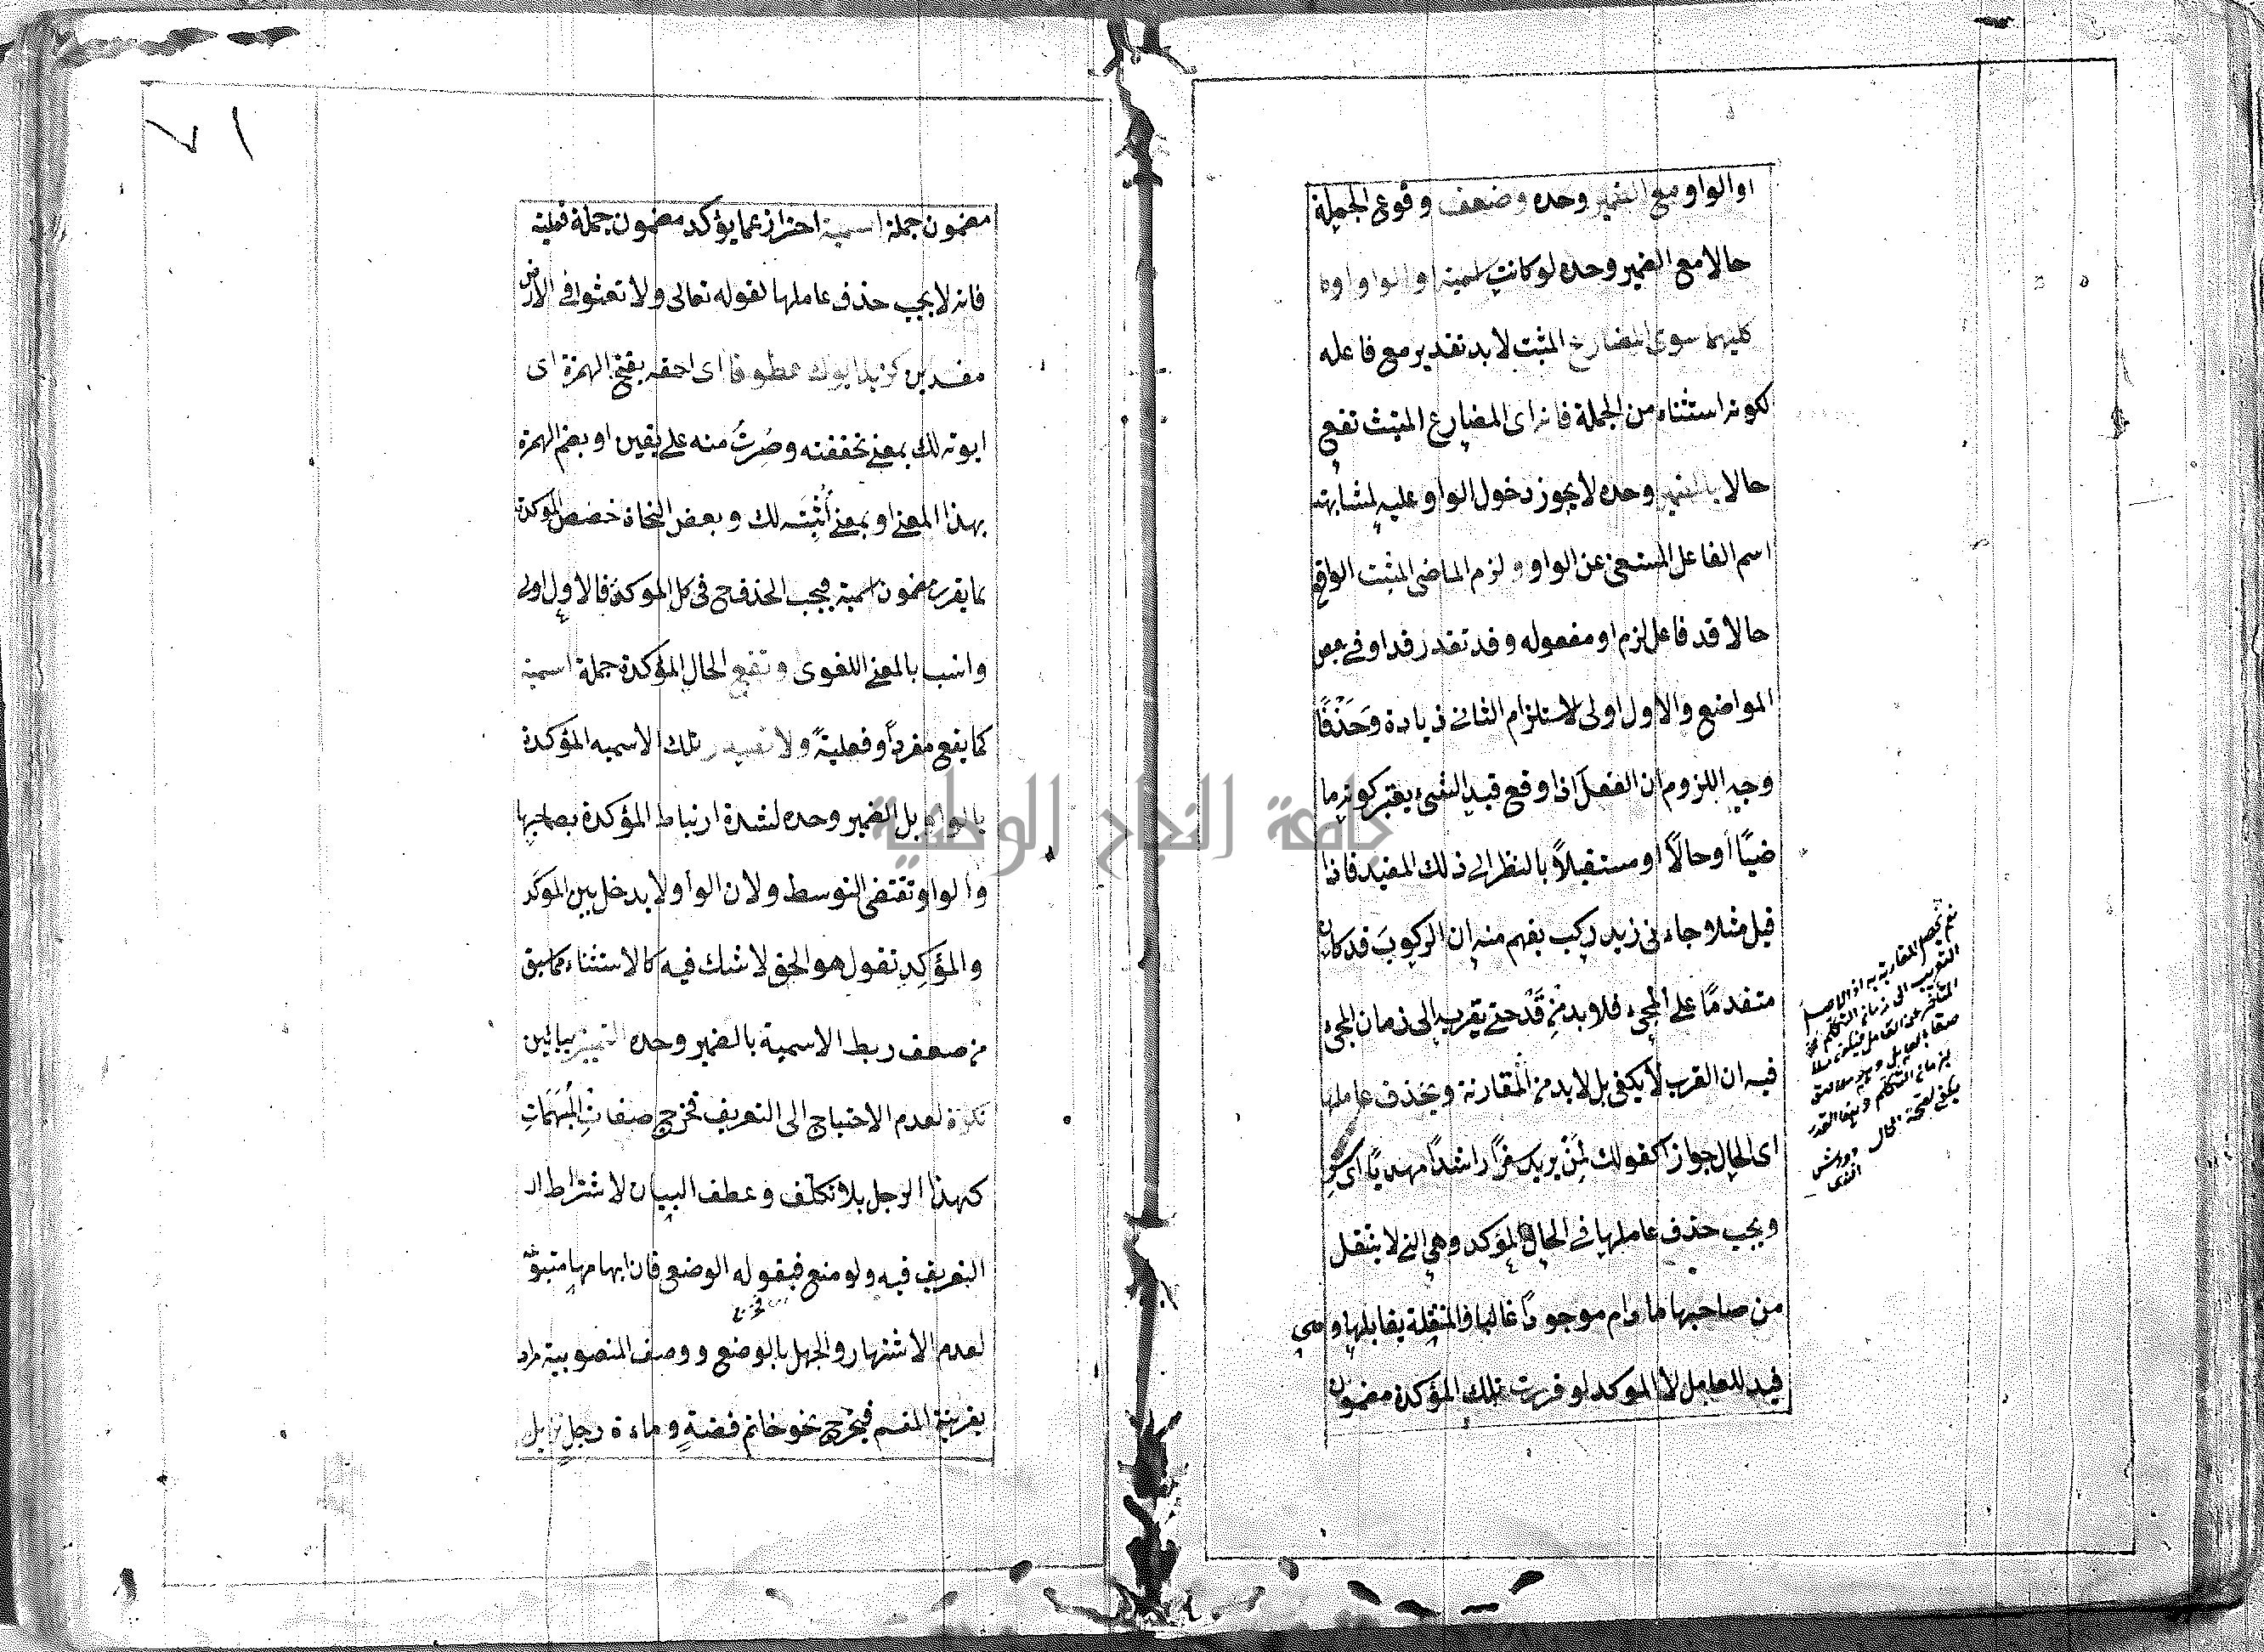 او الواو مع الضمير وحده وضعف وقوع الجملة
حالا مع الضمير وحده لو كانت اسمية او الواو او
كليهما سوى المضارع المثبت لا بد تقديره مع فاعله
لكونه استثناء من الجملة فانه اى المضارع المثبت تقع
حالا بالضمير وحده لا يجوز دخول الواو عليه لمشابهته
اسم الفاعل المستغنى عن الواو ولزم الماضى المثبت الواقع
حالا قد فاعل لزم او مفعوله وقد تقدر قد او فى بعض
المواضع والاول اولى لاستلزام الثانى زيادة وحَذْفًا
وجه اللزوم ان الفعلَ اذا وقع قيد الشىء يعتبر كونه ما
ضيًا أو حالاً او مستقبلاً بالنظر الى ذلك المقيد فاذا
قيل مثلا وجاءنى زيد ركب يفهم منه ان الركوبَ قد كان
متقدمًا على المجىء فلا بد من قَدْ حتى يقربه الى زمان المجىء
فيه ان القرب لا يكفى بل لا بد من المقارنة ويحذف عاملها
اى الحال جوازا كقولك لِمَنْ يريد سفرًا راشدًا مهديًا اى سِر
ويجب حذف عاملها فى الحال المؤكد وهى التى لا ينتقل
من صاحبها ما دام موجودًا غالبا والمنتقلة يقابلها وهى
قيد للعامل لا المؤكد لو قررت تلك المؤكدة مضمون
المقارنة به اذ
التقريب الى زمان التكلم
المتأخر عن العامل
بزمان التكلم
يكفى لصحة الحال
٧١
مضمون جملة اسمية احتراز عما يؤكد مضمون جملة فعلية
فانه لا يجب حذف عاملها لقوله تعالى ولا تعثوا فى الارض
مفسدين كزيد ابوك عطوفا اى احقه بفتح الهمزة اى
ابوته لك بمعنى تحققته وصِرتُ منه على يقين او بضم الهمزة
بهذا المعنى او بمعنى أُثْبِتَه لك وبعض النحاة خصص المؤكدة
بما يقرر مضمون اسمية فيجب الحذف ح فى كل المؤكدة فالاول اولى
وانسب بالمعنى اللغوى وتقع الحال المؤكدة جملة اسمية
كما يقع مفرداً وفعليةً ولا تقيد تلك الاسميه المؤكدة
بالواو بل الضمير وحده لشدة ارتباط المؤكدة بصاحبها
والواو تقتضى التوسط ولان الواو لا يدخل بين المؤكد
والمؤكِد تقول هو الحق لا شك فيه كالاستثناء مما سبق
من ضعف ربط الاسمية بالضمير وحده التمييز بيائين
نكرة لعدم الاحتياج الى التعريف فخرج صفات المُبْهَمَاتِ
كهذا الرجل بلا تكلف وعطف البيان لاشتراط
التعريف فيه ولو منع فبقوله الوضعى فان ابهامها
لعدم الاشتهار والجهل بالوضع ووصف المنصوبية مراد
بقرينة المقسم فيخرج نحو خاتم فضةٍ وماءة رجلٍ
جامعة النجاح الوطنية